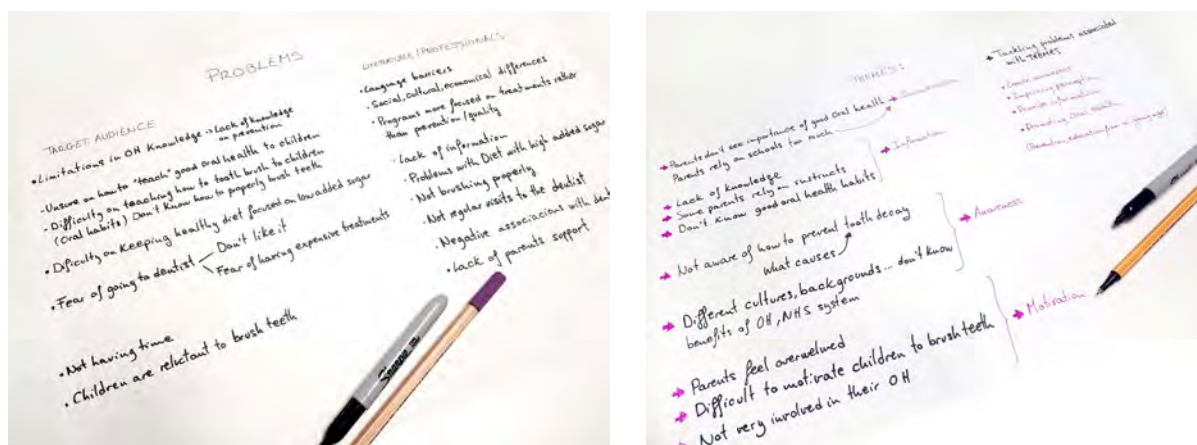 PROBLEMS
TARGET AUDIENCE
• Limitations in OH Knowledge → Lack of knowledge
on prevention
- Unsure on how to "teach" good oral health to children
- Difficulty on teaching how to tooth brush to children
(Oral habits) Don't know how to properly brush teeth
• Dificulty on keeping healthy diet focused on low added sugar
• Fear of going to dentist
Don't like it
Fear of having expensive treatments
• Not having time
• Children are reluctant to brush teeth
LITERATURE/PROFESSIONALS
• Language barriers
• Social, cultural, economical differences
• Programs more focused on treatments rather
than prevention/quality
• Lack of information
• Problems with Diet with high added sugar
• Not brushing properly
• Not regular visits to the dentist
• Negative associacions with
• Lack of parents support
Sharpie
THEMES:
→ Parents don't see importance of good Oral health
Parents rely on schools too much
→ Lack of knowledge
→ Some parents rely on
→ Don't know good oral health habits
→ Information
→ Not aware of how to prevent tooth decay
what causes
→ Different cultures, backgrounds... don't know
benefits of OH, NHS system
→ Awareness
→ Parents feel overwelmed
→ Difficult to motivate children to brush teeth
→ Not very involved in their OH
→ Motivation
→ Tackling problems associated
with THEMES
• Create awareness
• Improving perception
• Provide information
• Promoting Oral health
(Prevention, education from a young age)